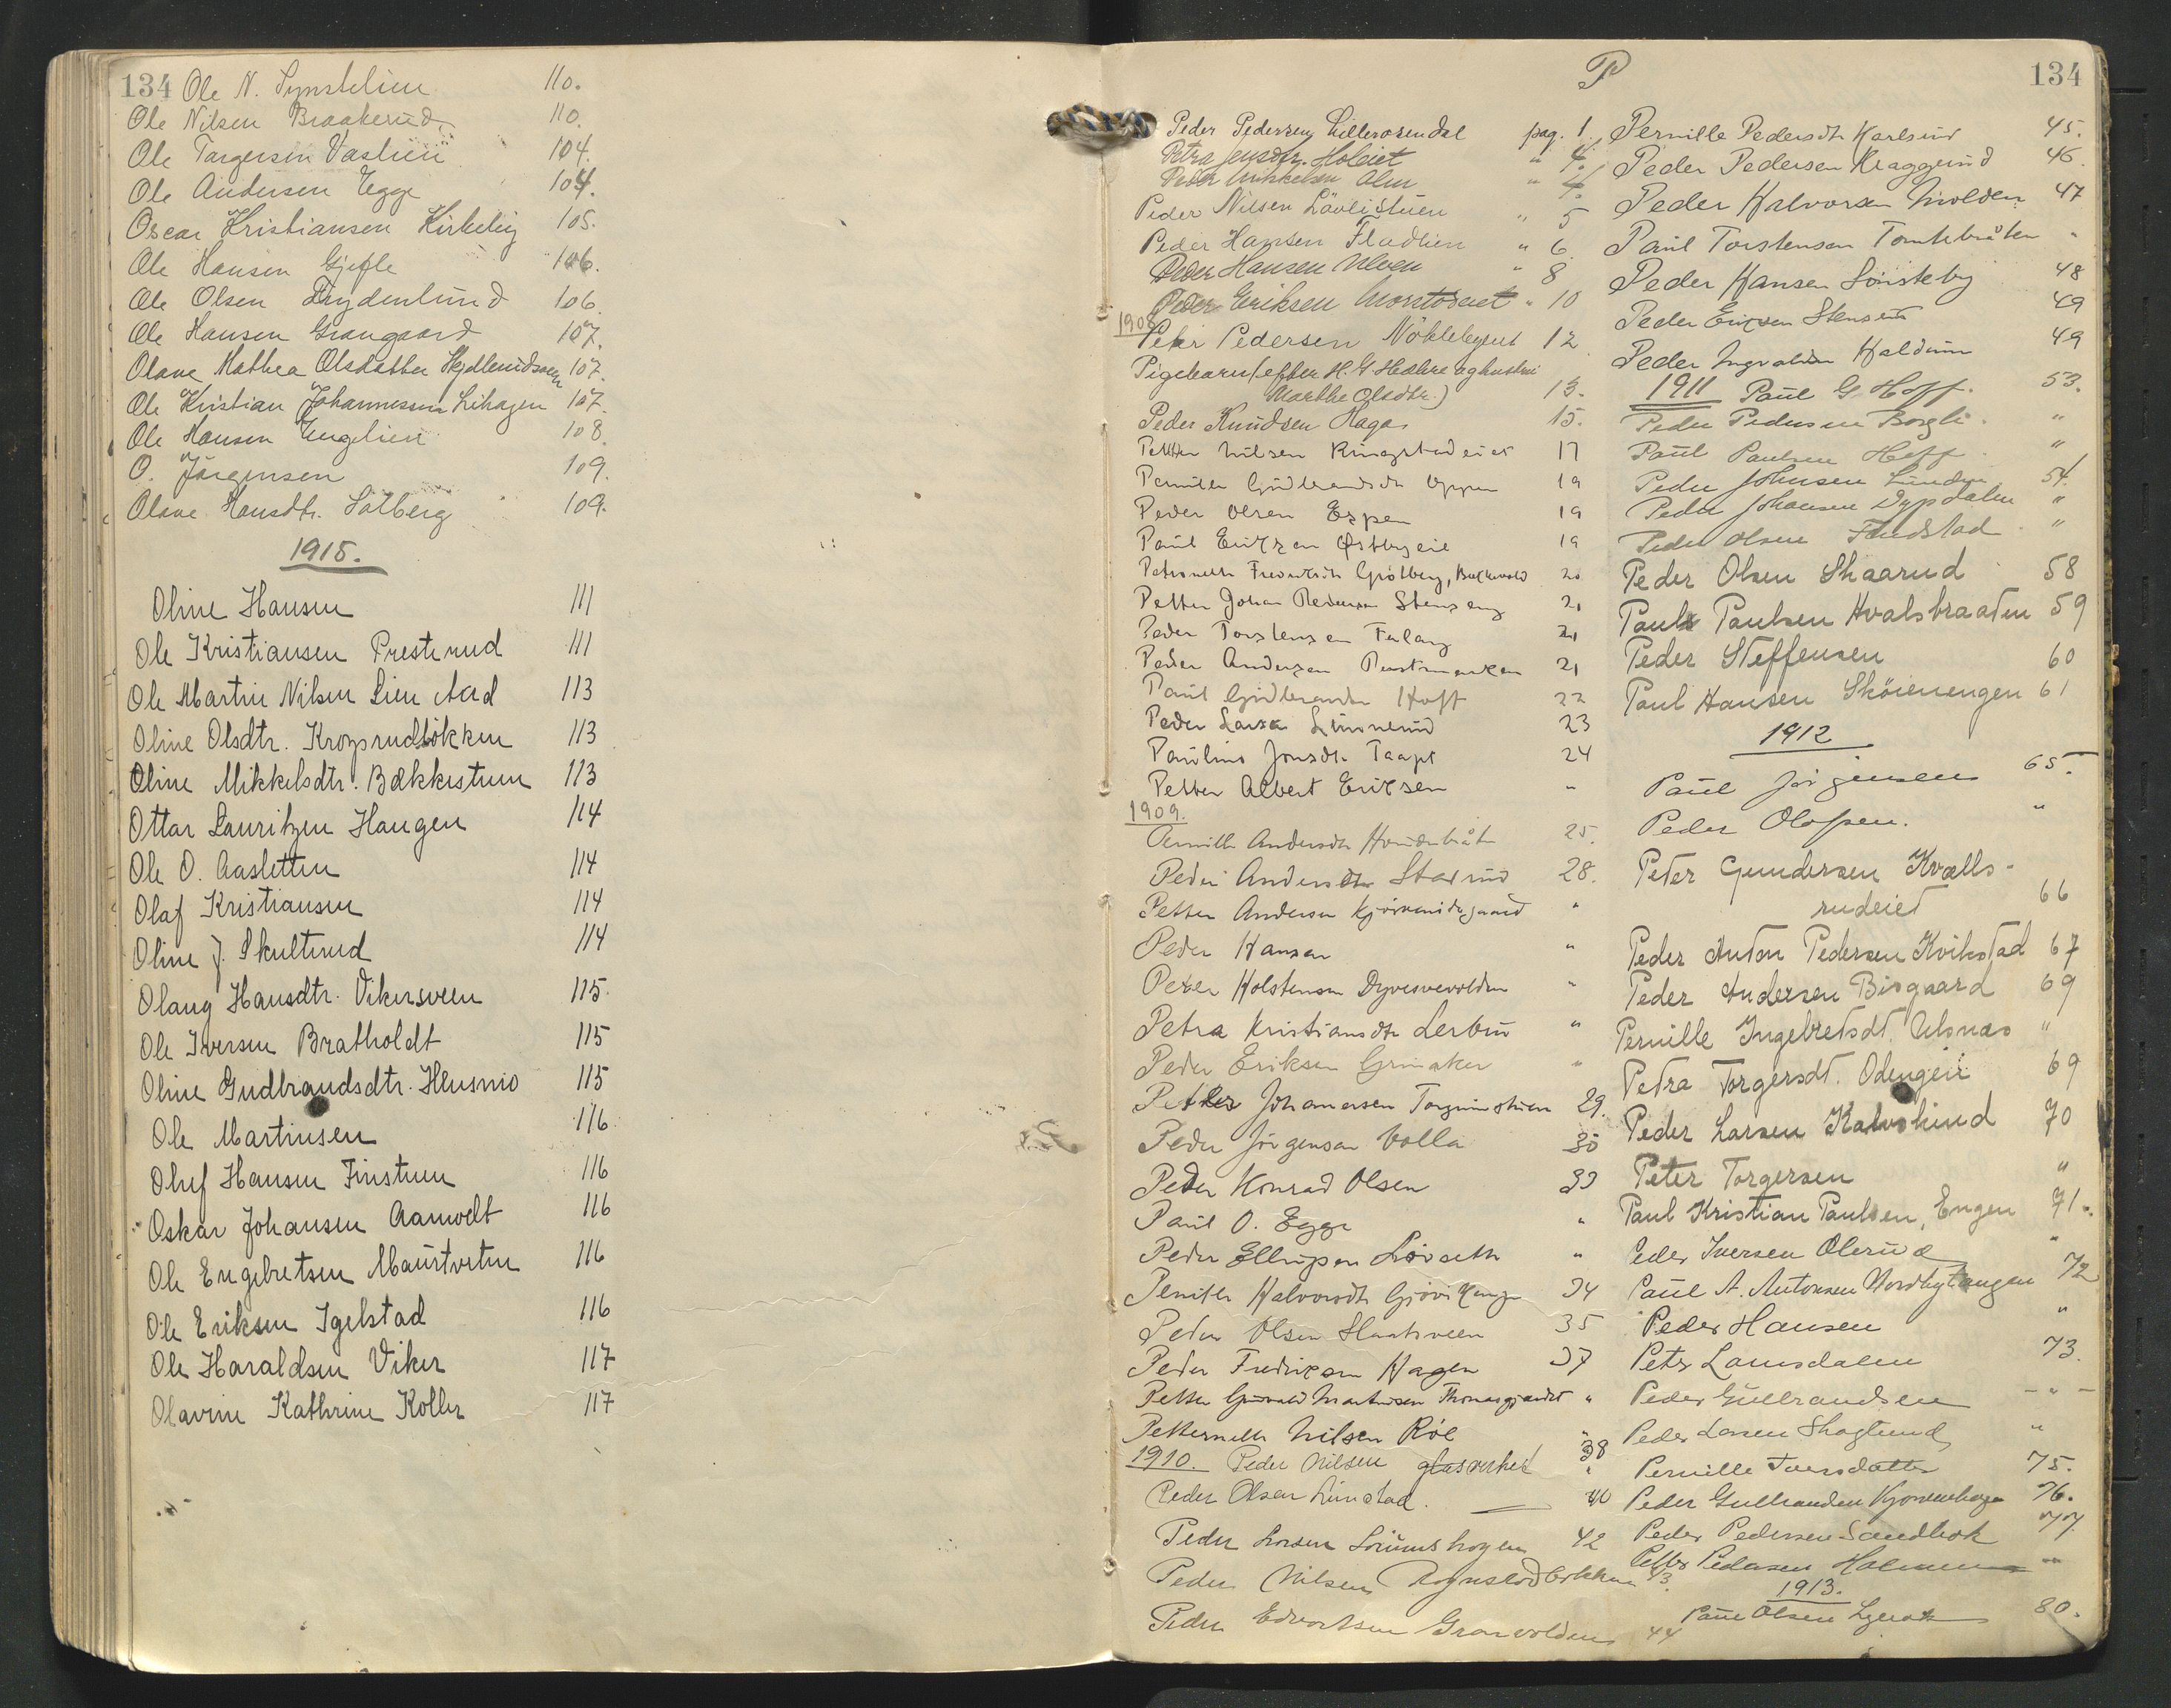 134 Ole N. Synstelien 110.
Ole Nilsen Braakerud 110.
Ole Torgersen Vaslien 104.
Ole Andersen Egge 104.
Oscar Kristiansen Kirkelig 105.
Ole Hansen Gjefle 106.
Ole Olsen Frydenlund 106.
Ole Hansen Grangaard 107.
Olave Mathea Olsdatter 107.
Ole Kristian Johannessen Lihagen 107.
Ole Hansen Engelien 108.
O. Jörgensen 109.
Olave Hansdtr. Solberg 109.
1915.
Oline Hansen 111
Ole Kristiansen Presterud 111
Ole Martin Nilsen Lien 113
Oline Olsdtr. 113
Oline Mikkelsdtr. Bækkestuen 113
Ottar Lauritzen Haugen 114
Ole O. Aasletten 114
Olaf Kristiansen 114
Oline J. Skulterud 114
Olaug Hansdtr. Vikersveen 115.
Ole Iversen Bratholdt 115
Oline Gudbrandsdtr. 115
Ole Martinsen 116
Oluf Hansen Finstuen 116
Oskar Johansen Aamodt 116
Ole Engebretsen 116
Ole Eriksen Igelstad 116
Ole Haraldsen Viker 117
Olavine Kathrine Koller 117
P
134
Peder Pedersen Lillerosendal pag. 1.
Petra Jensdtr. Holeiet " 4.
Peder Mikkelsen Alm " 4.
Peder Nilsen Lövlistuen " 5
Peder Hansen Fladlien " 6
Peder Hansen Ulven " 8
Peder Eriksen " 10
1908
Peter Pedersen Nökleby 12
Pigebarn (efter H. G. Hæhre og hustru
Marthe Olsdtr.) 13.
Peder Knudsen Haga 15.
Petter Nilsen Ringstadeiet 17
Pernille Gudbrandsdtr 19
Peder Olsen Espen 19
Paul Erikzen Østbyeie 19
Petronelle Fredriksdtr 20
Petter Johan Pedersen Stenseng 21
Peder Torstensen 21
Peder Andersen 21
Paul Gudbrandsen Hoff 22
Peder Larsen Linnerud 23
Pauline Jonsdtr 24
Petter Albert Eriksen "
1909.
Pernille Andersdtr 25.
Peder Andersen 28.
Petter Andersen "
Peder Hansen "
Peder Holstensen "
Petra Kristiansdtr "
Peder Eriksen Grinaker "
Petter Johannesen 29.
Peder Jörgensen Volla 30
Peder Konrad Olsen 33
Paul O. Egge "
Peder Ellingsen "
Pernille Halvorsdtr 34
Peder Olsen 35
Peder Fredriksen Hagen 37
Petter "
Petternelle Nilsen Röe 38
1910. Peder Nilsen glasverket "
Peder Olsen Linstad. 40
Peder Larsen 42
Peder Nilsen 43.
Peder Edvartsen Granvolden 44
Pernille Pedersdtr Karlsrud 45.
Peder Pedersen Kraggerud 46.
Peder Halvorsen Molden 47
Paul Torstensen Tomtebråten "
Peder Hansen Sönsteby 48
Peder Eriksen 49
Peder Ingvaldsen 49
1911 Paul G. Hoff. 53.
Peder Pedersen Borgli. "
Paul Paulsen Hoff. "
Peder Johnsen Linden 54.
Peder Johansen Dypdalen "
Peder Olsen Findstad "
Peder Olsen Skaarud 58
Paul Paulsen Hvalsbraaten 59
Peder Steffensen 60
Paul Hansen Sköienengen 61
1912
Paul Jörgensen 65.
Peder Olafsen. "
Peter Gundersen Kvells-
rudeiet 66
Peder Anton Pedersen Kvikstad 67
Peder Andersen Bisgaard 69
Pernille Ingebretsdt. Ulsnæs "
Petra Torgersdt. Odengeie 69
Peder Larsen 70
Peter Torgersen "
Paul Kristian Paulsen, Engen 71.
Peder Iversen Olerud "
Paul A. Antonsen Nordbytangen 72
Peder Hansen "
Petr Lansdalen 73.
Peder Gulbrandsen - " -
Peder Larsen Skoglund "
Pernille Iversdatter 75.
Peder Gulbrandsen 76.
Peder Pedersen Sandbok 77.
Petter Pedersen Holmen "
1913.
Paul Olsen 80.